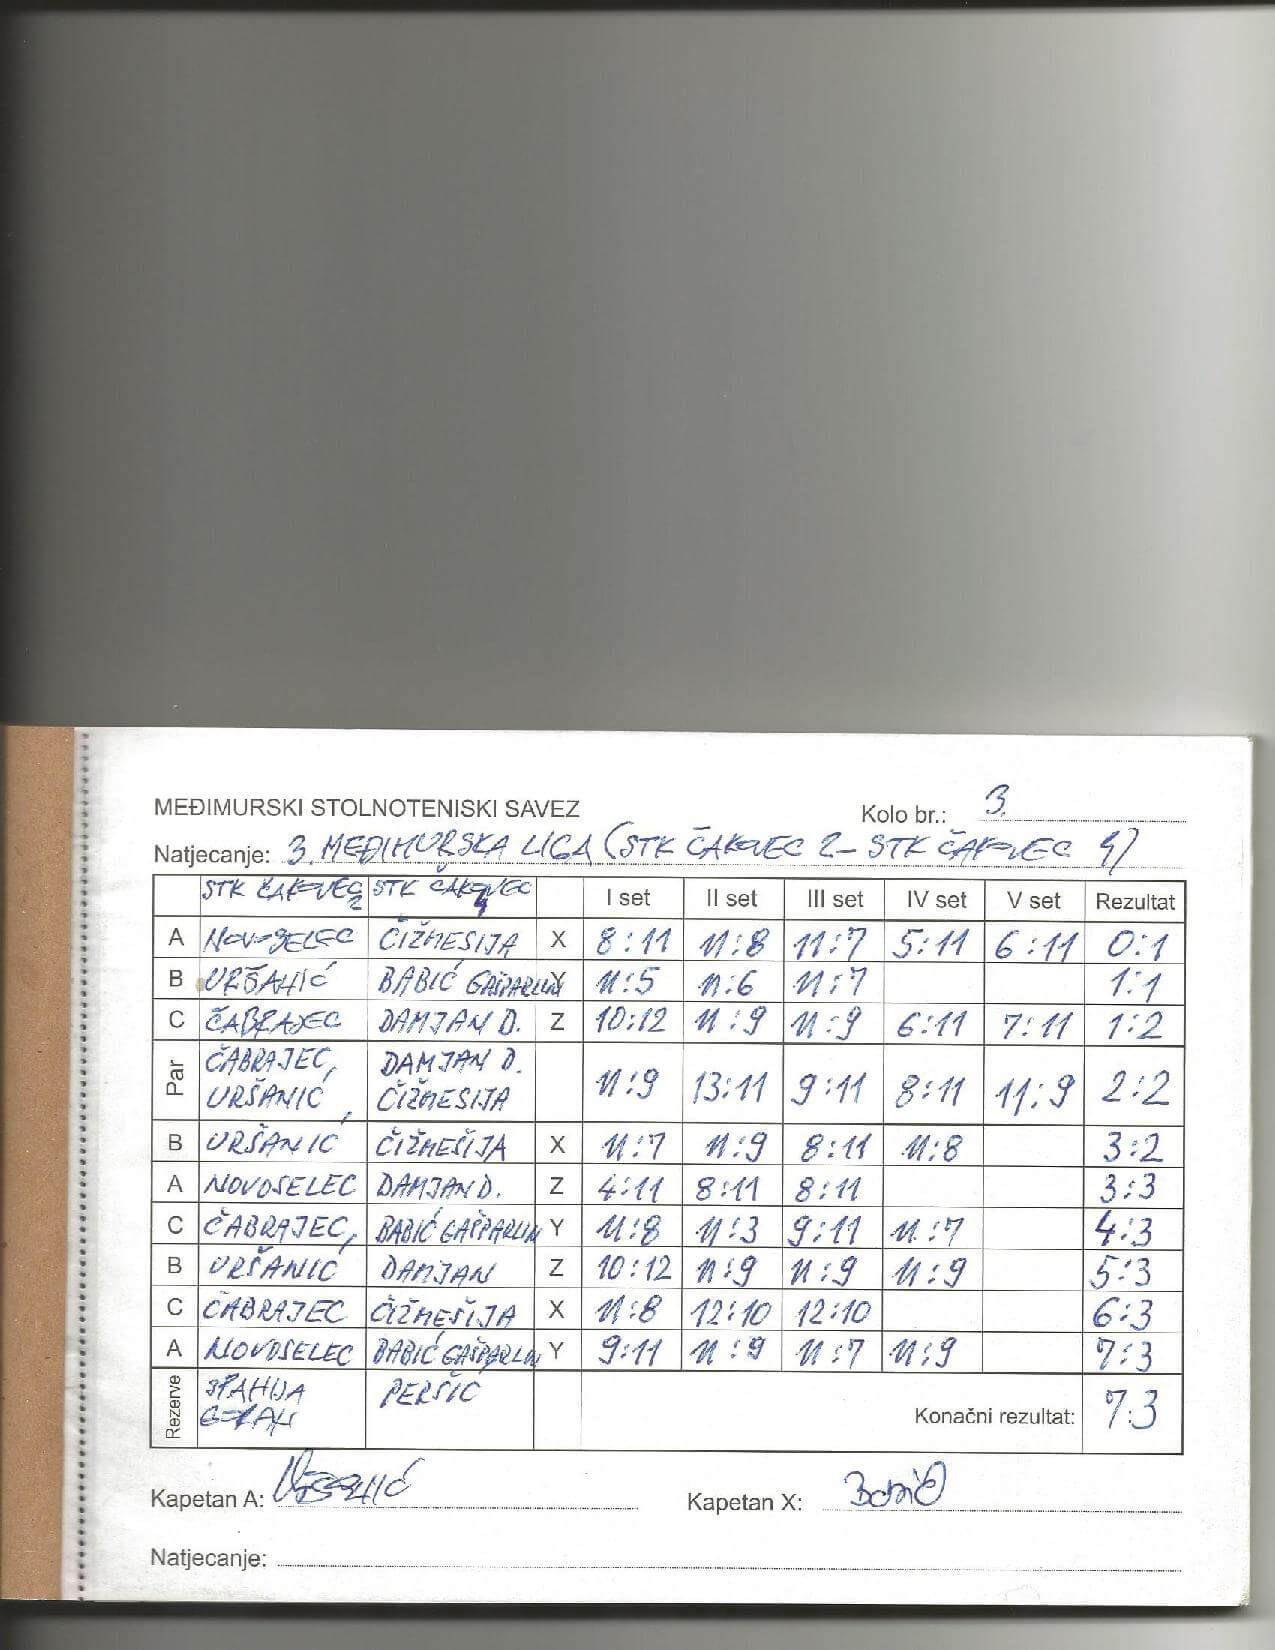 MEĐIMURSKI STOLNOTENISKI SAVEZ
Kolo br.: 3.
Natjecanje: 3. MEĐIMURSKA LIGA (STK ČAKOVEC 2 - STK ČAKOVEC 4)
STK ČAKOVEC 2 STK ČAKOVEC 4 I set II set III set IV set V set Rezultat
A NOVOSELEC ČIŽMESIJA X 8:11 11:8 11:7 5:11 6:11 0:1
B URŠANIĆ BABIĆ GAŠPARLIN Y 11:5 11:6 11:7 1:1
C ČABRAJEC DAMJAN D. Z 10:12 11:9 11:9 6:11 7:11 1:2
Par ČABRAJEC, URŠANIĆ DAMJAN D. ČIŽMESIJA 11:9 13:11 9:11 8:11 11:9 2:2
B URŠANIĆ ČIŽMEŠIJA X 11:7 11:9 8:11 11:8 3:2
A NOVOSELEC DAMJAN D. Z 4:11 8:11 8:11 3:3
C ČABRAJEC, BABIĆ GAŠPARLIN Y 11:8 11:3 9:11 11:7 4:3
B URŠANIĆ DAMJAN Z 10:12 11:9 11:9 11:9 5:3
C ČABRAJEC ČIŽMEŠIJA X 11:8 12:10 12:10 6:3
A NOVOSELEC BABIĆ GAŠPARLIN Y 9:11 11:9 11:7 11:9 7:3
Rezerve SPAHIJA PERŠIĆ Konačni rezultat: 7:3
Kapetan A: Uršanić Kapetan X: Babić
Natjecanje: